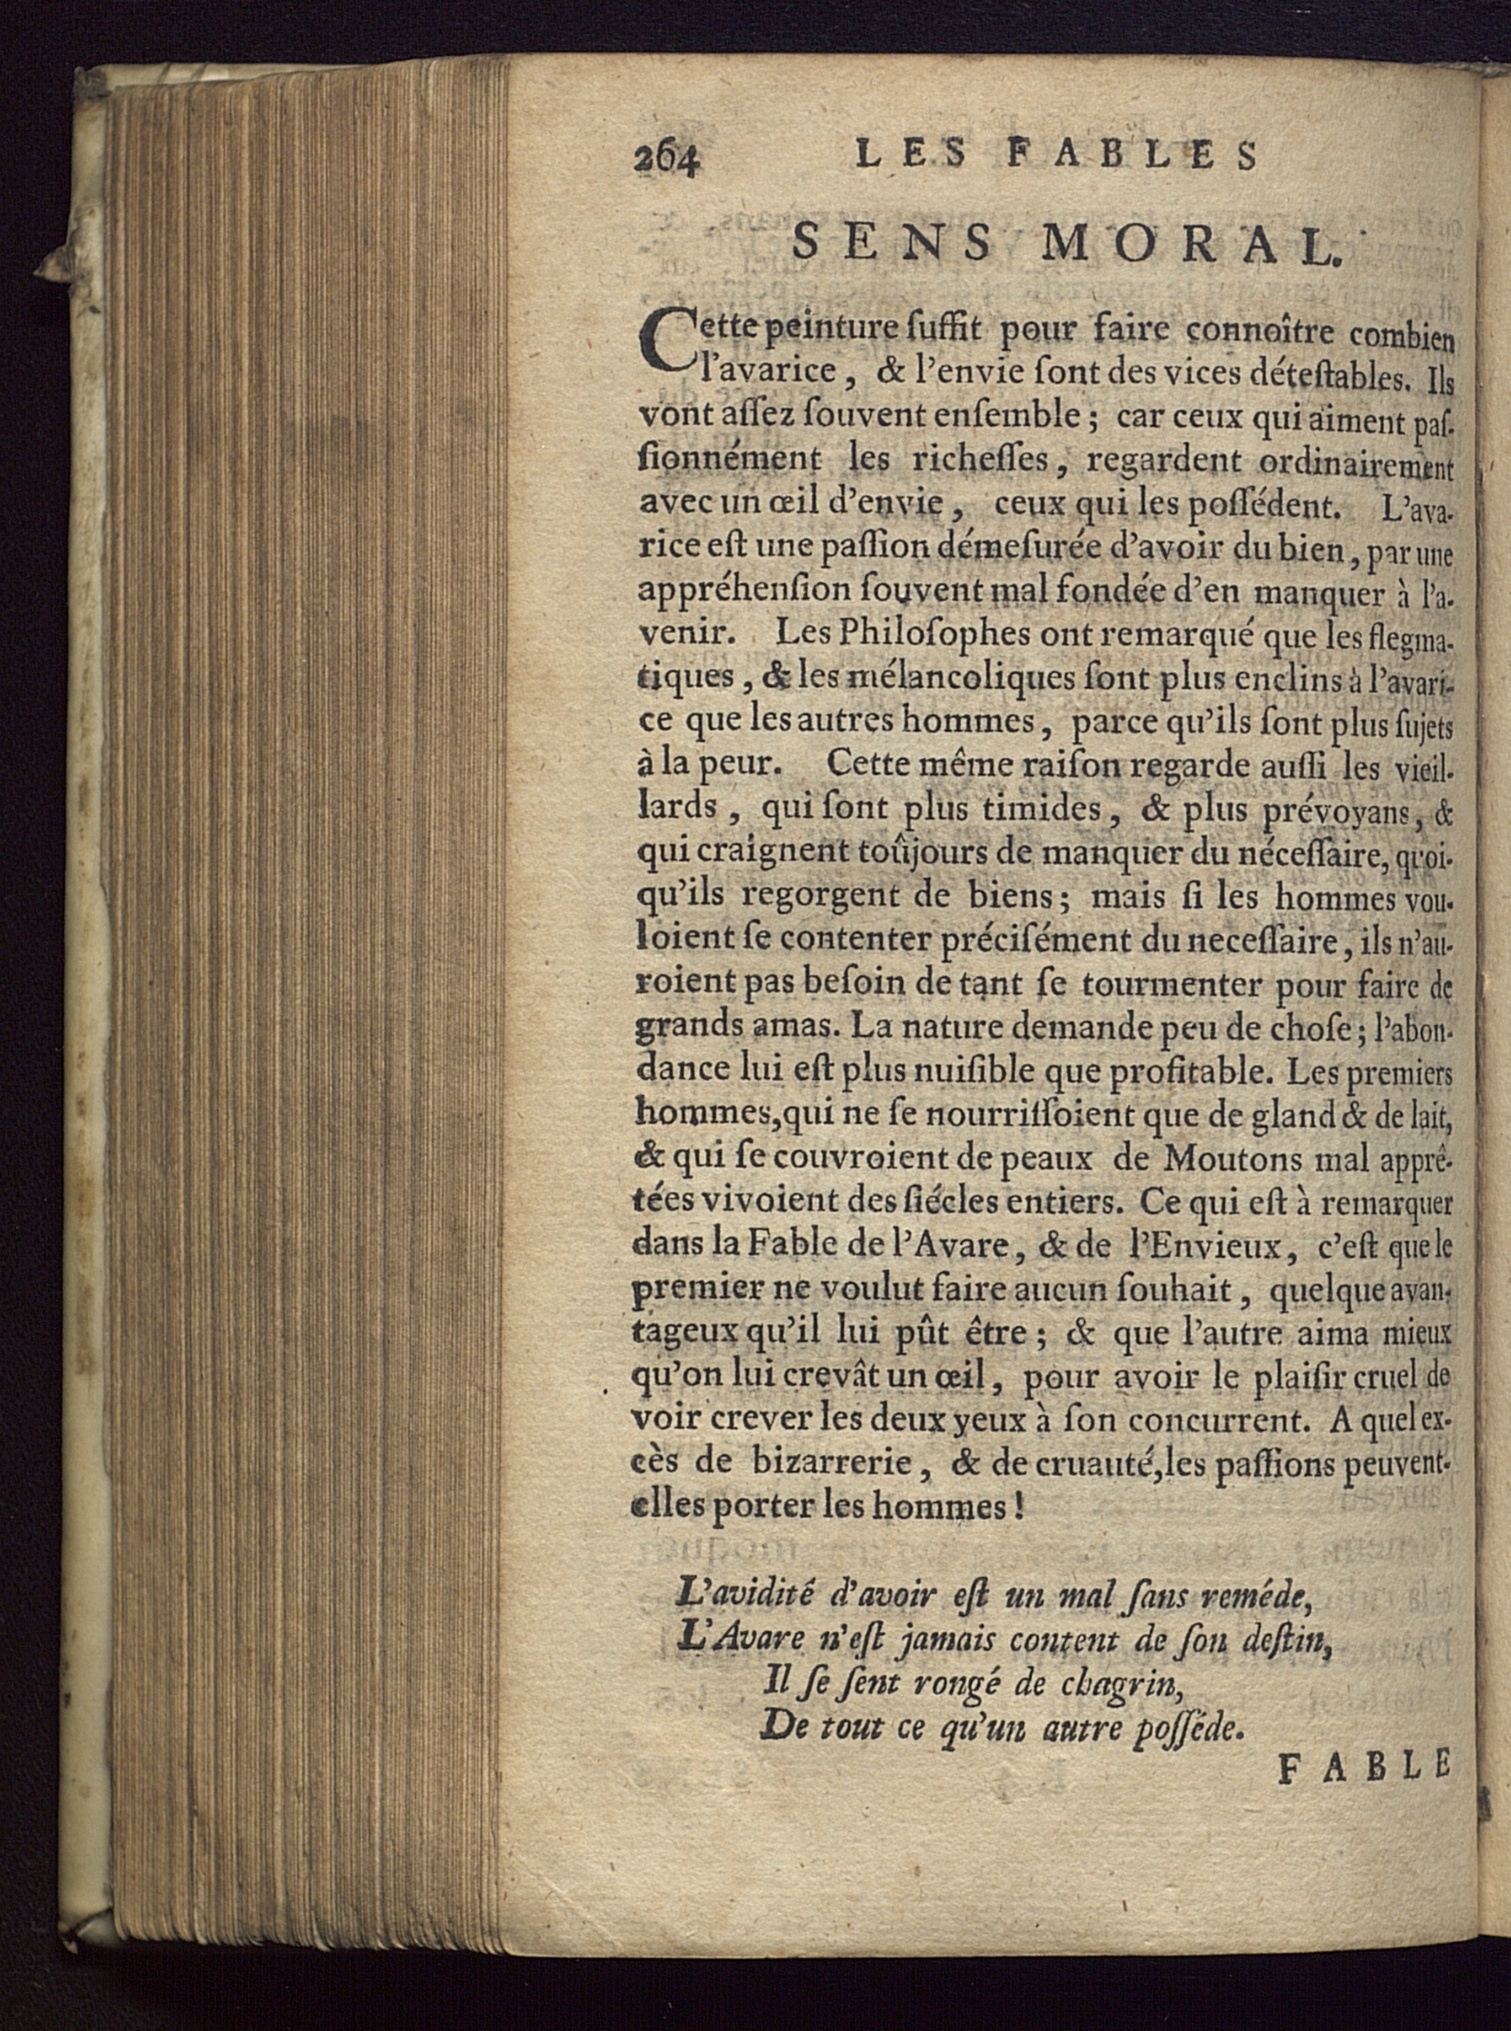 264 LES FABLES
SENS MORAL.
Cette peinture ſuffit pour faire connoître combien
l'avarice, & l'envie ſont des vices déteſtables. Ils
vont aſſez ſouvent enſemble; car ceux qui aiment paſ-
ſionnément les richeſſes, regardent ordinairement
avec un œil d'envie, ceux qui les poſſédent. L'ava-
rice eſt une paſſion démeſurée d'avoir du bien, par une
appréhenſion ſouvent mal fondée d'en manquer à l'a-
venir. Les Philoſophes ont remarqué que les flegma-
tiques, & les mélancoliques ſont plus enclins à l'avari-
ce que les autres hommes, parce qu'ils ſont plus ſujets
à la peur. Cette même raiſon regarde auſſi les vieil-
lards, qui ſont plus timides, & plus prévoyans, &
qui craignent toûjours de manquer du néceſſaire, quoi-
qu'ils regorgent de biens; mais ſi les hommes vou-
loient ſe contenter préciſément du neceſſaire, ils n'au-
roient pas beſoin de tant ſe tourmenter pour faire de
grands amas. La nature demande peu de choſe; l'abon-
dance lui eſt plus nuiſible que profitable. Les premiers
hommes, qui ne ſe nourriſſoient que de gland & de lait,
& qui ſe couvroient de peaux de Moutons mal apprê-
tées vivoient des ſiécles entiers. Ce qui eſt à remarquer
dans la Fable de l'Avare, & de l'Envieux, c'eſt que le
premier ne voulut faire aucun ſouhait, quelque avan-
tageux qu'il lui pût être; & que l'autre aima mieux
qu'on lui crevât un œil, pour avoir le plaiſir cruel de
voir crever les deux yeux à ſon concurrent. A quel ex-
cès de bizarrerie, & de cruauté, les paſſions peuvent-
elles porter les hommes!
L'avidité d'avoir eſt un mal ſans reméde,
L'Avare n'eſt jamais content de ſon deſtin,
Il ſe ſent rongé de chagrin,
De tout ce qu'un autre poſſéde.
FABLE